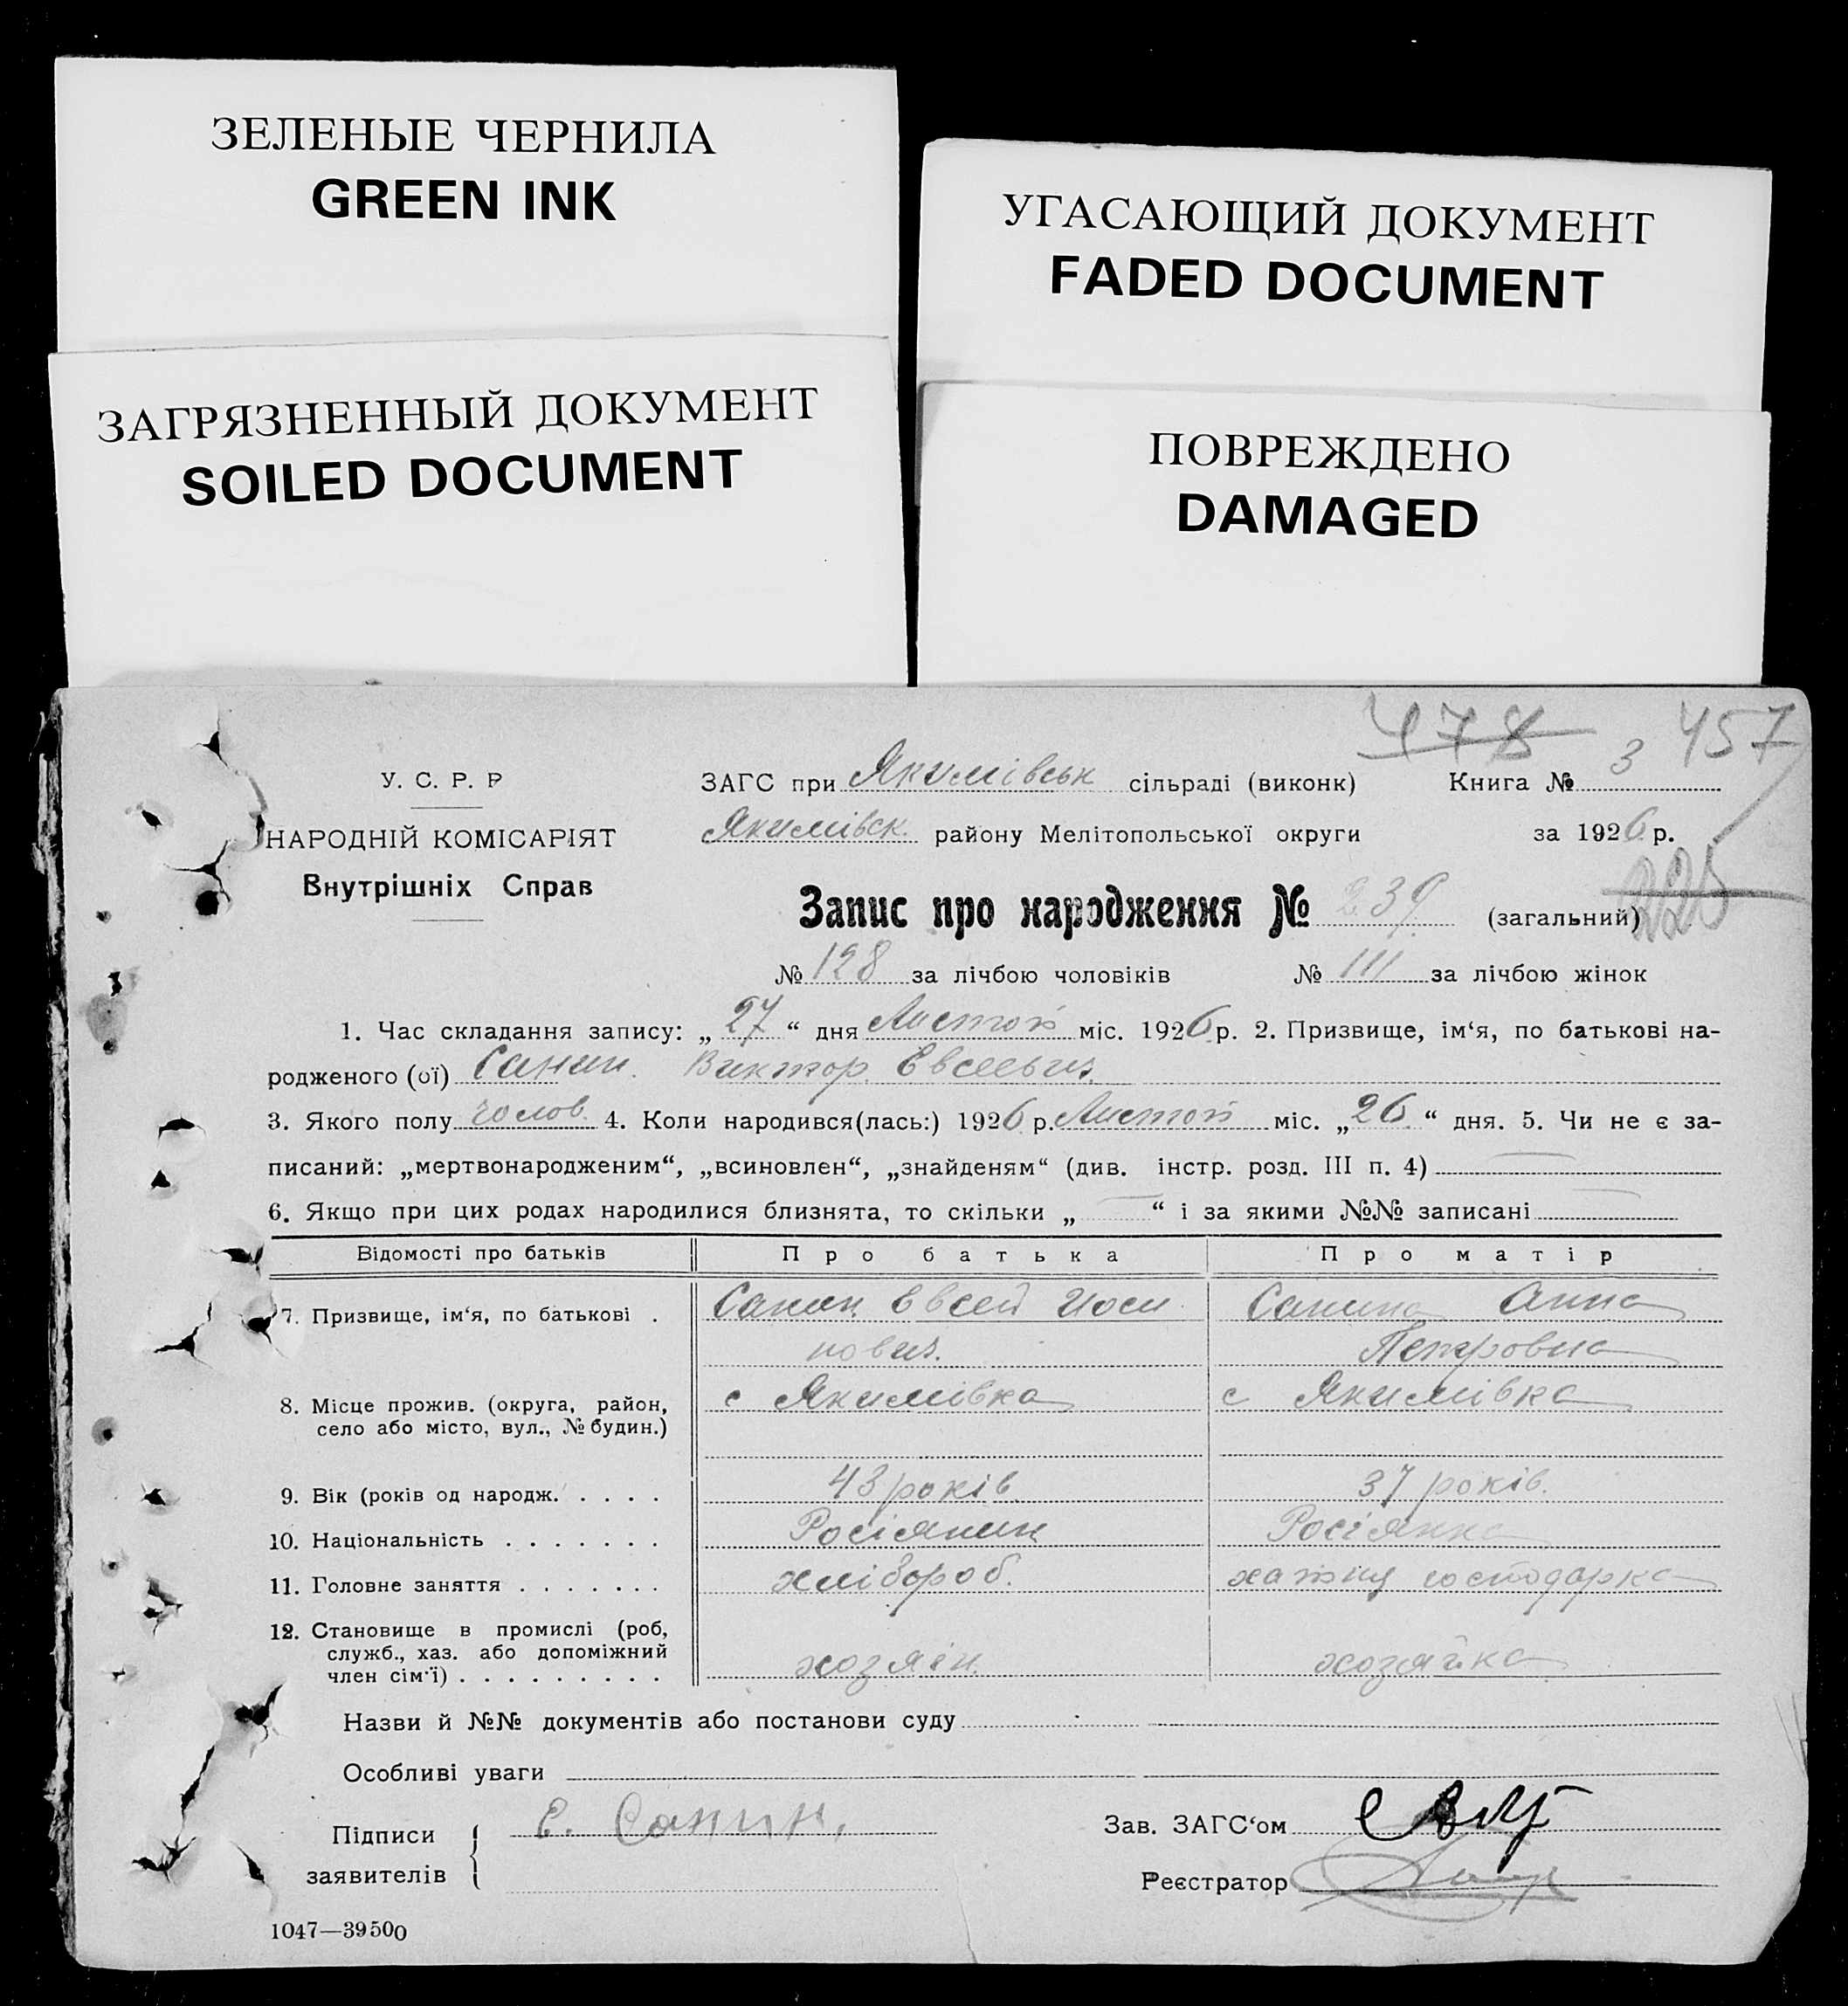 ЗЕЛЕНЫЕ ЧЕРНИЛА
GREEN INK
УГАСАЮЩИЙ ДОКУМЕНТ
FADED DOCUMENT
ЗАГРЯЗНЕННЫЙ ДОКУМЕНТ
SOILED DOCUMENT
ПОВРЕЖДЕНО
DAMAGED
478 457
У. С. Р. Р
НАРОДНІЙ КОМІСАРІЯТ
Внутрішніх Справ
ЗАГС при Якимівськ сільраді (виконк) Книга № 3
Якимівск. району Мелітопольської округи за 1926 р.
225
Запис про народження № 239 (загальний)
№ 128 за лічбою чоловіків № 111 за лічбою жінок
1. Час складання запису: „ 27 “ дня Листоп міс. 1926 р. 2. Призвище, ім‘я, по батькові на-
родженого (ої) Санин. Виктор. Евсеевич.
3. Якого полу чолов. 4. Коли народився(лась:) 1926 р. Листоп міс. „ 26 “ дня. 5. Чи не є за-
писаний: „мертвонародженим“, „всиновлен“, „знайденям“ (див. інстр. розд. III п. 4)
6. Якщо при цих родах народилися близнята, то скільки „ “ і за якими №№ записані
Відомості про батьків Про батька Про матір
7. Призвище, ім‘я, по батькові . Санин Евсей Иоси Санина Анна
пович. Петровна
8. Місце прожив. (округа, район, с Якимівка с Якимівка
село або місто, вул., № будин.)
9. Вік (років од народж. . . . . 43 років 37 років.
10. Національність . . . . . . . Росіянин Росіянка
11. Головне заняття . . . . . . . хлібороб. хатня господарка
12. Становище в промислі (роб,
служб., хаз. або допоміжний
член сім‘ї) . . . . . . . . . хозяін. хозяйка
Назви й №№ документів або постанови суду
Особливі уваги
Підписи
заявителів
Е. Санин.
Зав. ЗАГС‘ом
Реєстратор
1047—39500